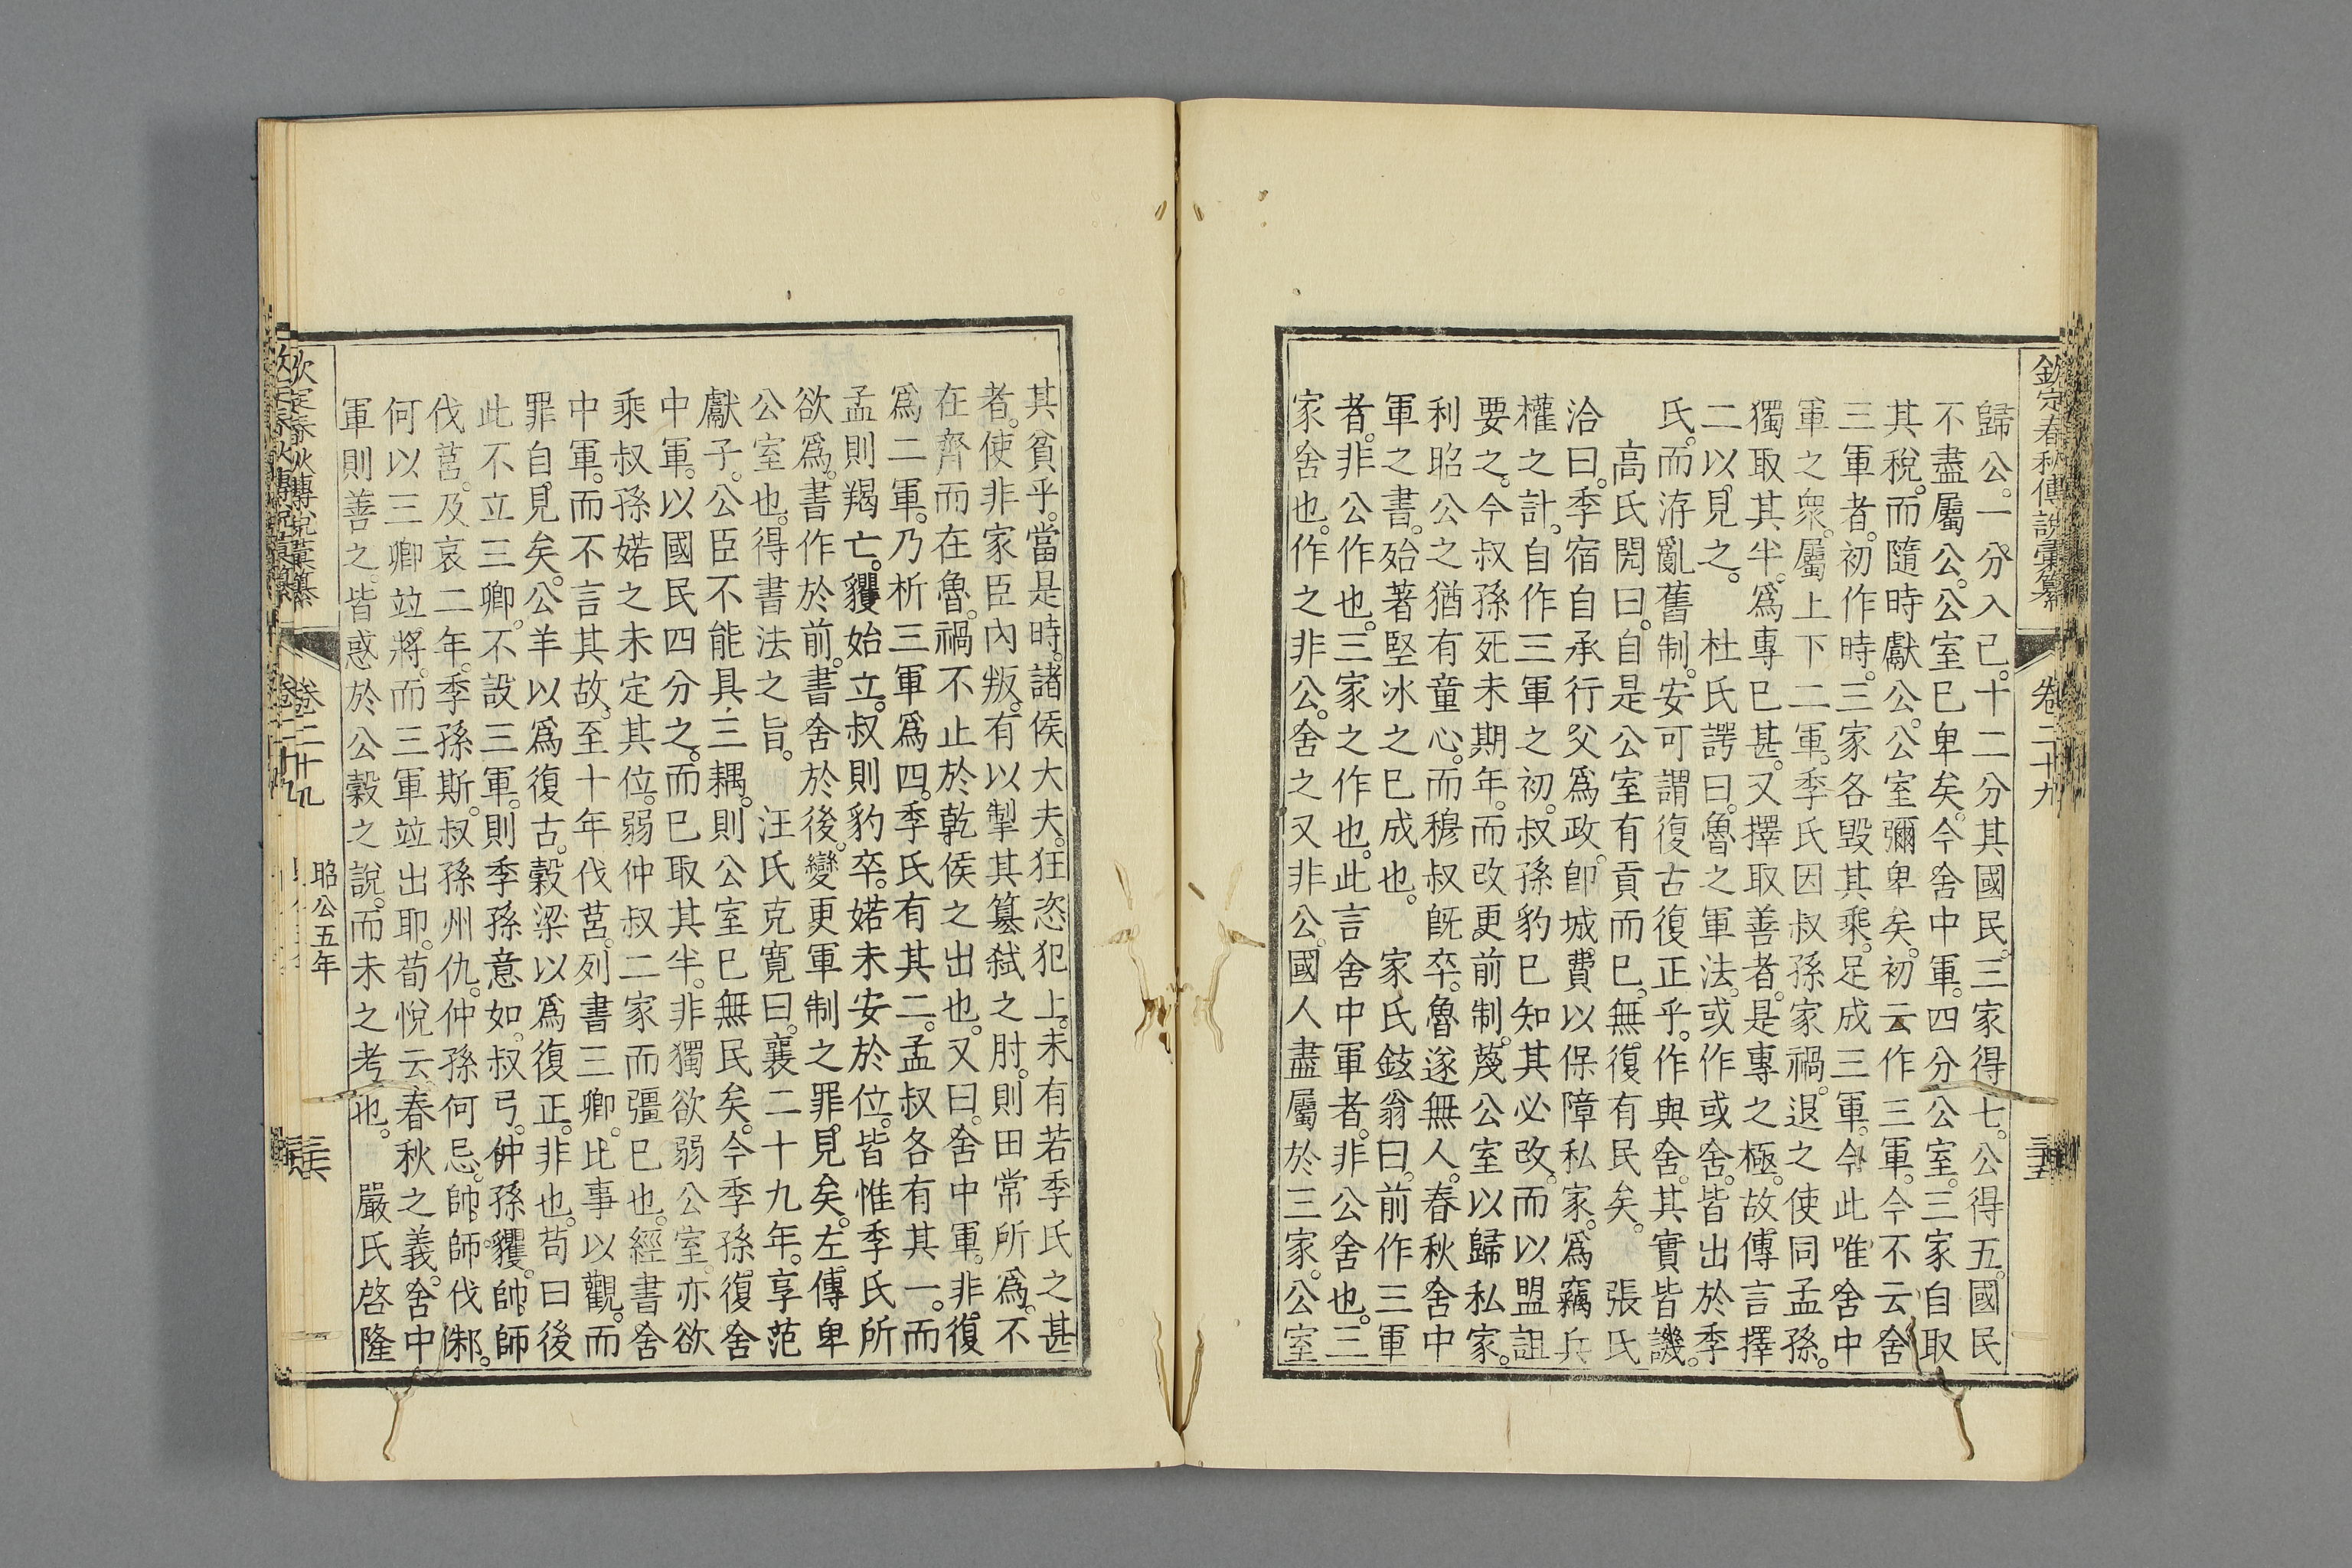 欽定春秋傳說彙纂 卷二十九 三五
歸公。一分入己。十二分其國民。三家得七。公得五。國民
不盡屬公。公室已卑矣。今舍中軍。四分公室。三家自取
其稅。而隨時獻公。公室彌卑矣。初云作三軍。今不云舍
三軍者。初作時。三家各毀其乘。足成三軍。今此唯舍中
軍之衆。屬上下二軍。季氏因叔孫家禍。退之使同孟孫。
獨取其半。爲專已甚。又擇取善者。是專之極。故傳言擇
二以見之。 杜氏諤曰。魯之軍法。或作或舍。皆出於季
氏。而洊亂舊制。安可謂復古復正乎。作與舍。其實皆譏。
高氏閌曰。自是公室有貢而已。無復有民矣。 張氏
洽曰。季宿自承行父爲政。卽城費以保障私家。爲竊兵
權之計。自作三軍之初。叔孫豹已知其必改。而以盟詛
要之。今叔孫死未期年。而改更前制。蔑公室以歸私家。
利昭公之猶有童心。而穆叔旣卒。魯遂無人。春秋舍中
軍之書。始著堅冰之已成也。 家氏鉉翁曰。前作三軍
者。非公作也。三家之作也。此言舍中軍者。非公舍也。三
家舍也。作之非公。舍之又非公。國人盡屬於三家。公室
其貧乎。當是時。諸侯大夫。狂恣犯上。未有若季氏之甚
者。使非家臣內叛。有以掣其簒弑之肘。則田常所爲。不
在齊而在魯。禍不止於乾侯之出也。又曰。舍中軍。非復
爲二軍。乃析三軍爲四。季氏有其二。孟叔各有其一。而
孟則羯亡。貜始立。叔則豹卒。婼未安於位。皆惟季氏所
欲爲。書作於前。書舍於後。變更軍制之罪。見矣。左傳卑
公室也。得書法之旨。 汪氏克寬曰。襄二十九年。享范
獻子。公臣不能具三耦。則公室已無民矣。今季孫復舍
中軍。以國民四分之。而已取其半。非獨欲弱公室。亦欲
乘叔孫婼之未定其位。弱仲叔二家而彊已也。經書舍
中軍。而不言其故。至十年伐莒。列書三卿。比事以觀。而
罪自見矣。公羊以爲復古。穀梁以爲復正。非也。苟曰後
此不立三卿。不設三軍。則季孫意如。叔弓。仲孫貜。帥師
伐莒。及哀二年。季孫斯。叔孫州仇。仲孫何忌。帥師伐邾。
何以三卿竝將。而三軍竝出耶。荀悅云。春秋之義。舍中
軍則善之。皆惑於公穀之說。而未之考也。 嚴氏啓隆
欽定春秋傳說彙纂 卷二十九 昭公五年 三六